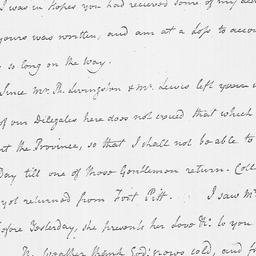 I was in hopes you had received some of my
yours was written, and am at a loss to accou
so long on the way.
Since Mr. Ph. Livingston & Mr. Lewis left
of our Delegates here does not exceed that which
the Province, so that I shall not be able to
Day till one of those Gentlemen return. Coll
returned from Fort Pitt. I saw Mr
before Yesterday, she presents her Love &c. to you
Weather thank God: grows cold, and